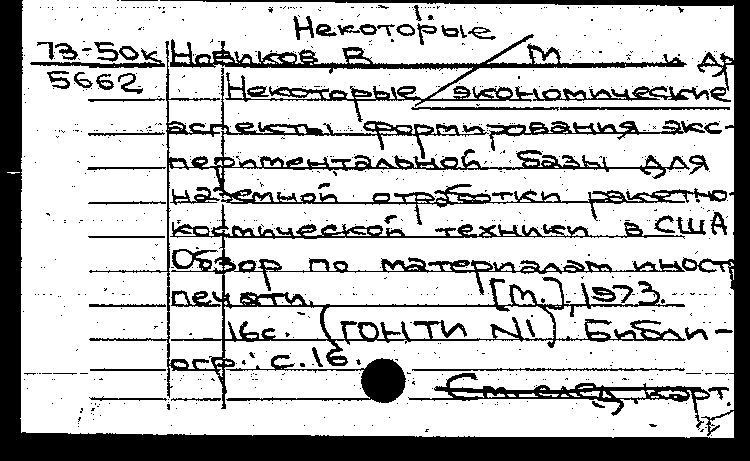 Некоторые
73-50к Новиков, В М и др
5662 Некоторые экономические
аспекты формирования экс-
периментальной базы для
наземной отработки ракетно-
космической техники в США.
Обзор по материалам иностр
печати. [М.], 1973.
16с. (ГОНТИ N1). Библи-
огр.: с.16.
См. след. карт.